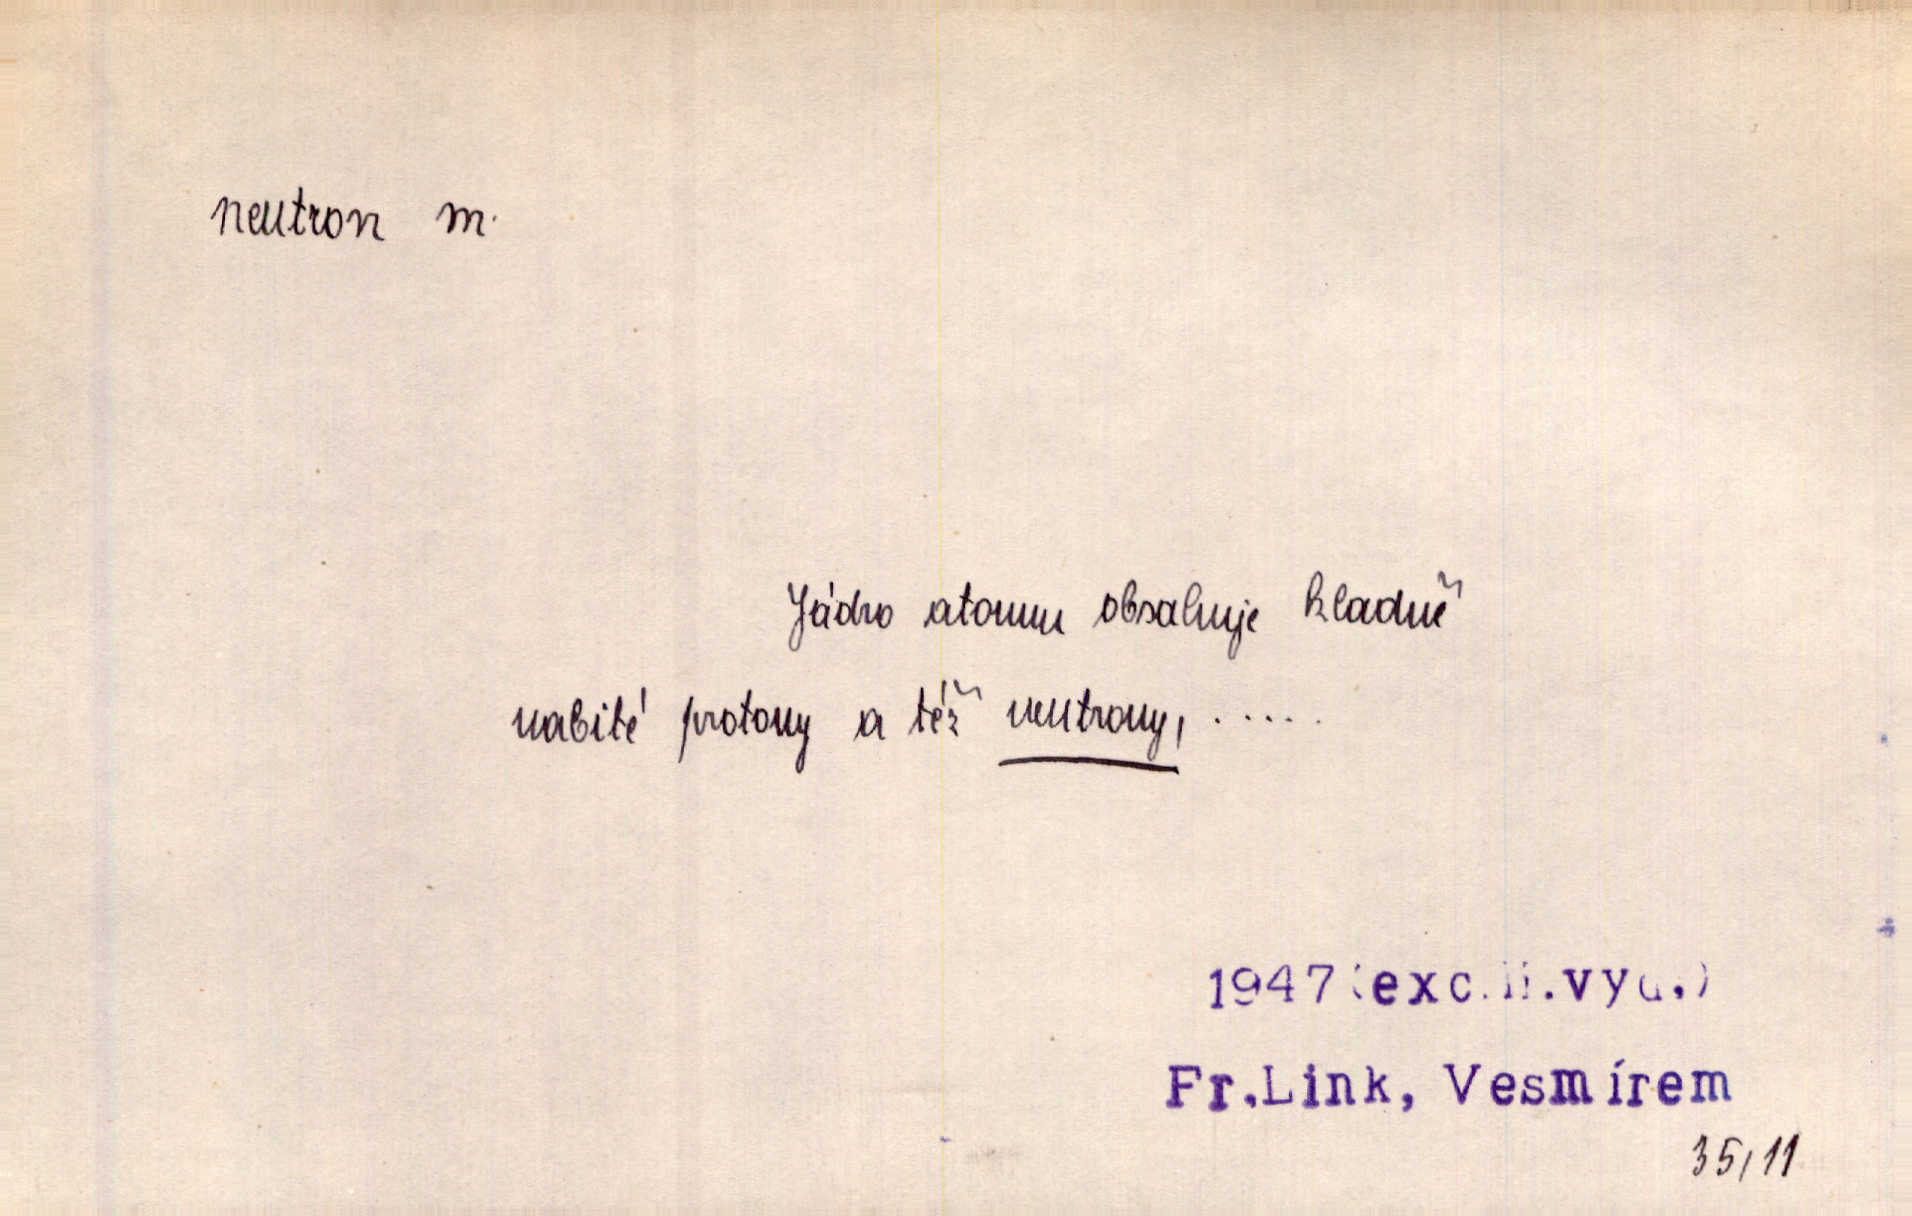 neutron m.
Jádro atomu obsahuje kladně
nabité protony a též neutrony, .....
1947(exc.ii.vyd.)
Fr.Link, Vesmírem
35,11